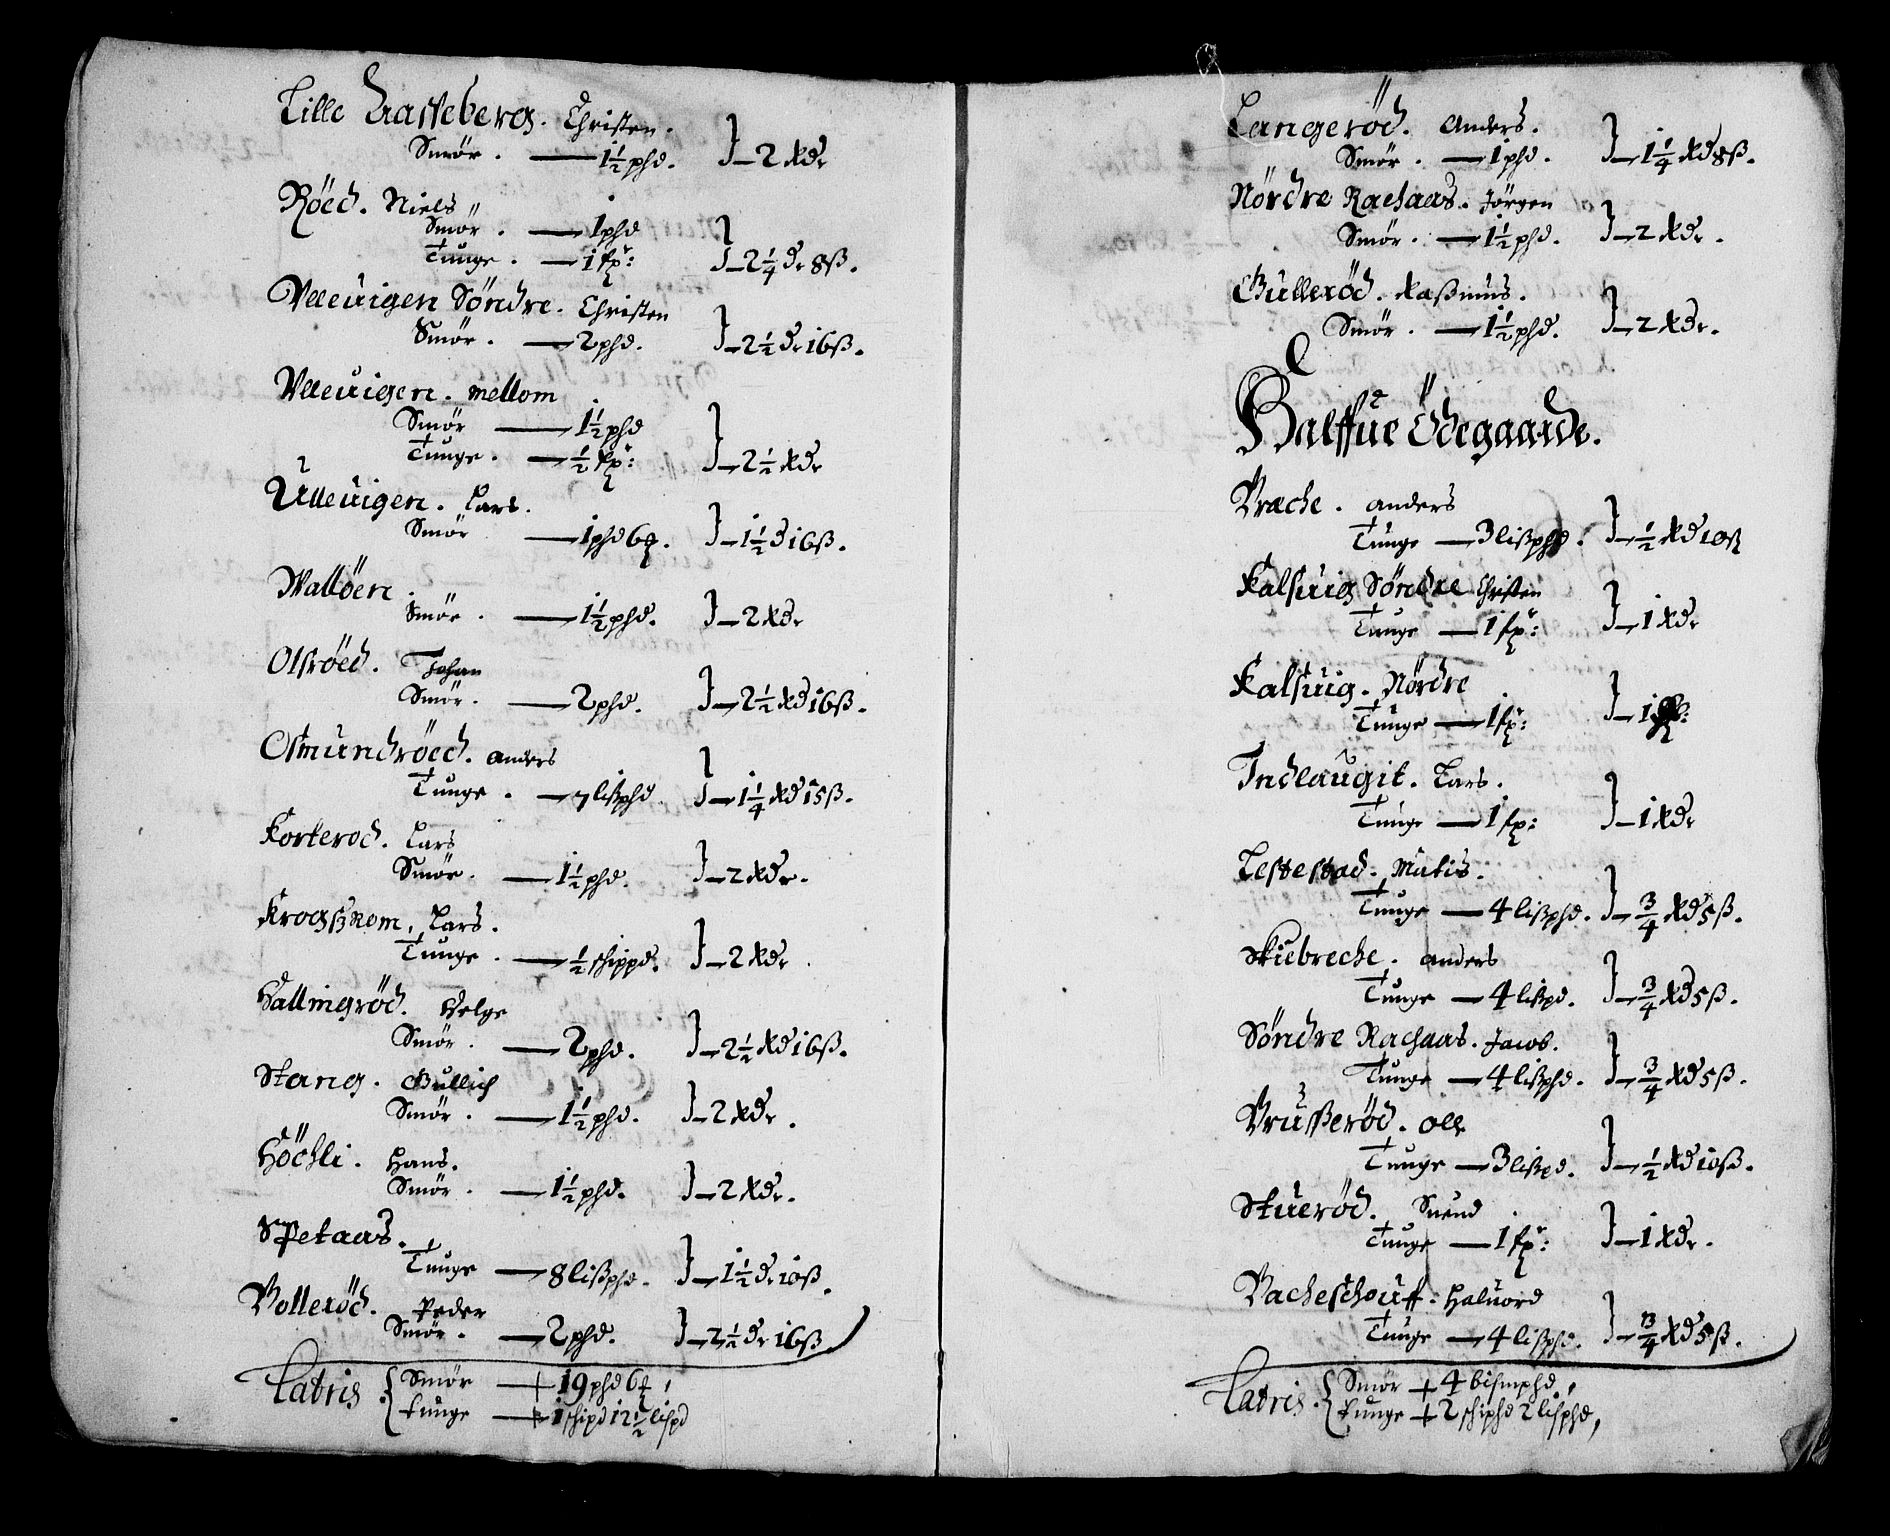 Lille Hasseberg. Christen.
Smør. — 1½ phd. }— 2 Rdr
Röed. Niels
Smör. — 1 phd
Tunge. — 1 fp: }— 2¼ dr 8ß.
Ulleuigen Söndre. Christen
Smör. — 2 phd. }— 2½ dr 16ß.
Ulleuigen. mellom
Smör — 1½ phd
Tunge. — ½ fp: }— 2½ Rdr
Ulleuigen. Lars.
Smör — 1 phd 6 }— 1½ d 16ß.
Walløen.
Smör. — 1½ phd. }— 2 Rdr
Olsröed. Johan
Smör. — 2 phd. }— 2½ Rd 16ß.
Osmundröed. anders
Tunge. — 7 lißphd. }— 1¼ Rd 15ß.
Korteröd. Lars
Smör. — 1½ phd. }— 2 Rdr.
Krogßrom. Lars.
Tunge. — ½ schippd. }— 2 Rdr.
Hallingröd. Helge
Smör. — 2 phd. }— 2½ Rd 16ß.
Stang. Gullich
Smör. — 1½ phd. }— 2 Rdr.
Höchli. Hans.
Smör. — 1½ phd. }— 2 Rdr.
Spetaas.
Tunge — 8 lißphd. }— 1½ dr 10ß.
Bolleröd. Peder
Smör. — 2 phd. }— 2½ dr 16ß
Latris { Smör — 19 phd 6
Tunge — 1 schipd 12½ lispd
Langeröd. Anders.
Smör. — 1 phd. }— 1¼ Rd 8ß.
Nördre Rachaas. Jörgen
Smör. — 1½ phd. }— 2 Rdr.
Gulleröd. Raßmus.
Smör. — 1½ phd. }— 2 Rdr.
Halffue Ödegaarde.
Bræche. anders
Tunge — 3 lißphd. }— ½ Rd 10ß
Kalsuig Söndre Christen
Tunge — 1 fp: }— 1 Rdr
Kalsuig. Nördre
Tunge — 1 fp: }— 1
Indlaugit. Lars.
Tunge — 1 fp: }— 1 Rdr
Testestad. Matis.
Tunge — 4 lißphd. }— ¾ Rd 5ß.
Skiebreche. anders
Tunge — 4 lißpd. }— ¾ Rd 5ß.
Söndre Rachaas. Jacob.
Tunge — 4 lißphd. }— ¾ Rd 5ß.
Brußeröd. Olle
Tunge — 3 lißpd. }— ½ Rd 10ß.
Stueröd. Suend
Tunge — 1 fp: }— 1 Rdr.
Bacheschouff. Haluord
Tunge — 4 lißphd. }— ¾ Rd 5ß.
Latris. { Smör + 4 bismphd,
Tunge + 2 schiphd 2 lisphd,